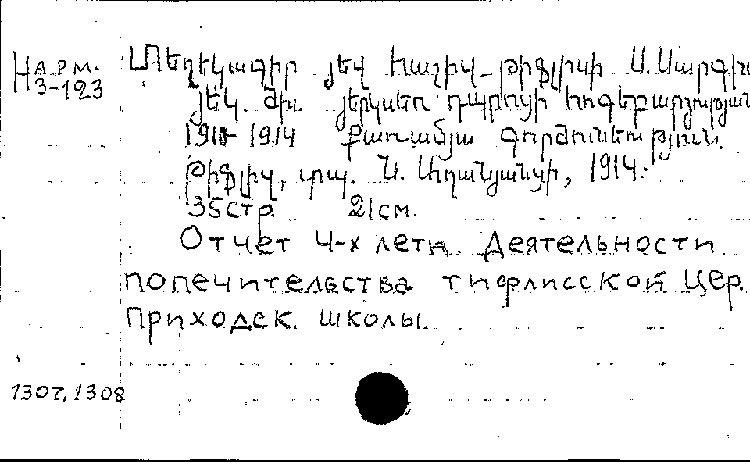 Нарм.
3-193
Տեղեկագիր յեվ հաշիվ Թիֆլիսի Ս. Սարգիս
յեկ. ծխ. յերկսեռ դպրոցի հոգեբարձության
1910-1914 քառամյա գործունեություն.
Թիֆլիզ, տպ. Ն. Աղանյանցի, 1914.
35стр 21см.
Отчет 4-х летн. деятельности
попечительства тифлисской цер.
приходск. школы.
1307, 1308